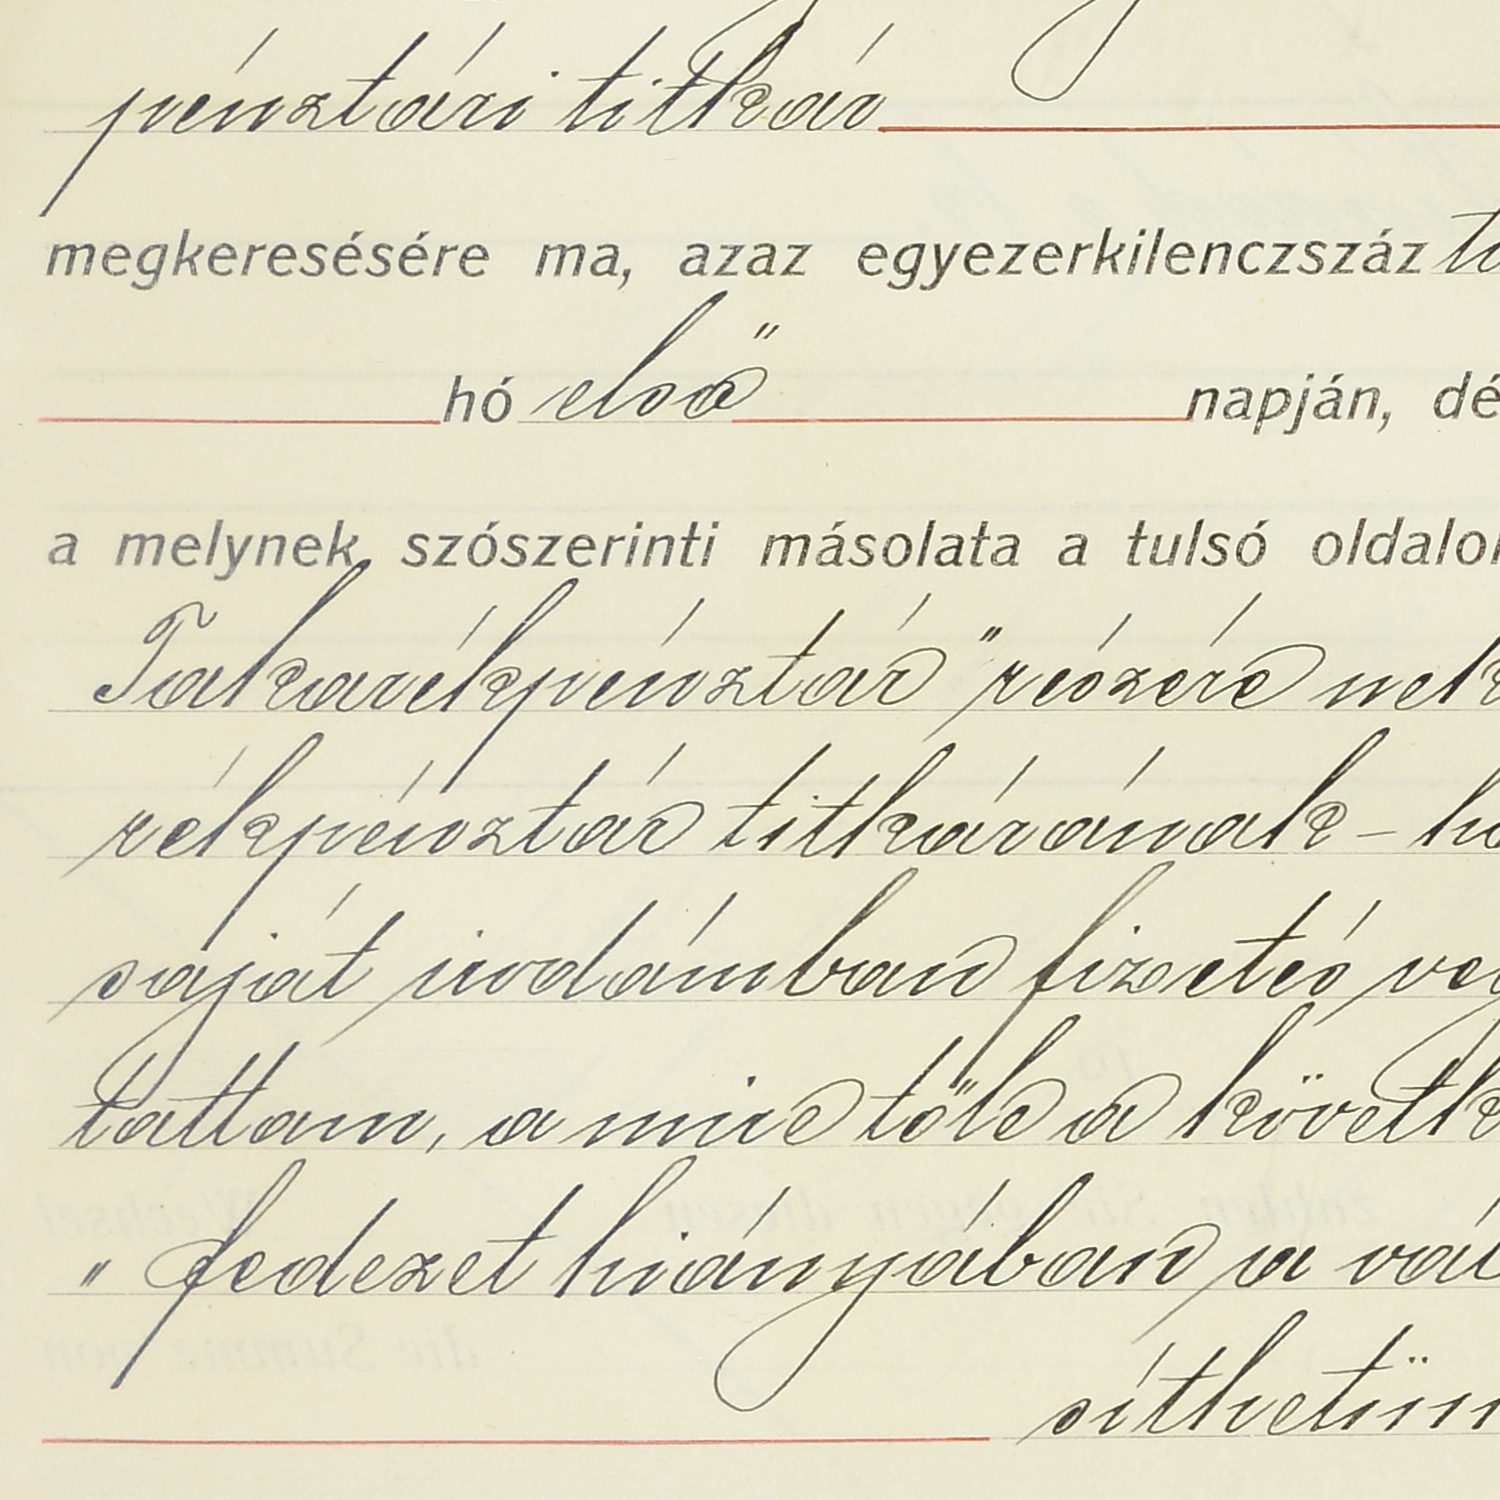 pénztári titkár
megkeresésére ma, azaz egyezerkilenczszáz
hó első napján, dé
a melynek szószerinti másolata a tulsó oldalon
Takarékpénztár" részére nek
rékpénztár titkárának – ho
saját irodámban fizetés veg
tattam, a mire tőle a követk
" fedezet hiányában a vál
síthetün